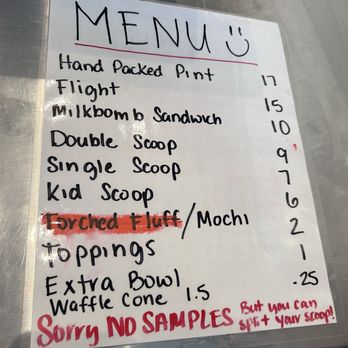 MENU
Hand Packed Pint 17
Flight 15
Milkbomb Sandwich 10
Double Scoop 9
Single Scoop 7
Kid Scoop 6
Torched Fluff/Mochi 2
Toppings 1
Extra Bowl .25
Waffle Cone 1.5
Sorry NO SAMPLES But you can
split your scoop!